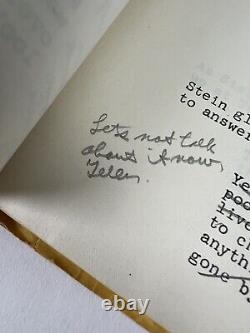 Stein gl
to answer
Let's not talk
about it now,
Yo
poo
live
to cl
anythi
gone b